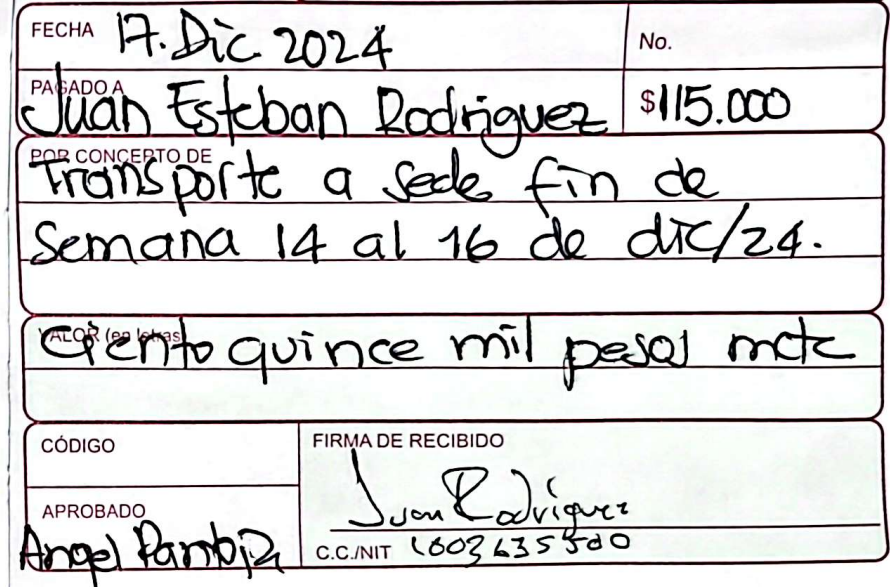 FECHA 17. Dic 2024
No.
PAGADO A
Juan Esteban Rodriguez $115.000
POR CONCEPTO DE
Transporte a sede fin de
Semana 14 al 16 de dic/24.
VALOR (en letras)
Ciento quince mil pesos mcte
CÓDIGO
FIRMA DE RECIBIDO
Juan Rodriguez
APROBADO
Angel
C.C./NIT